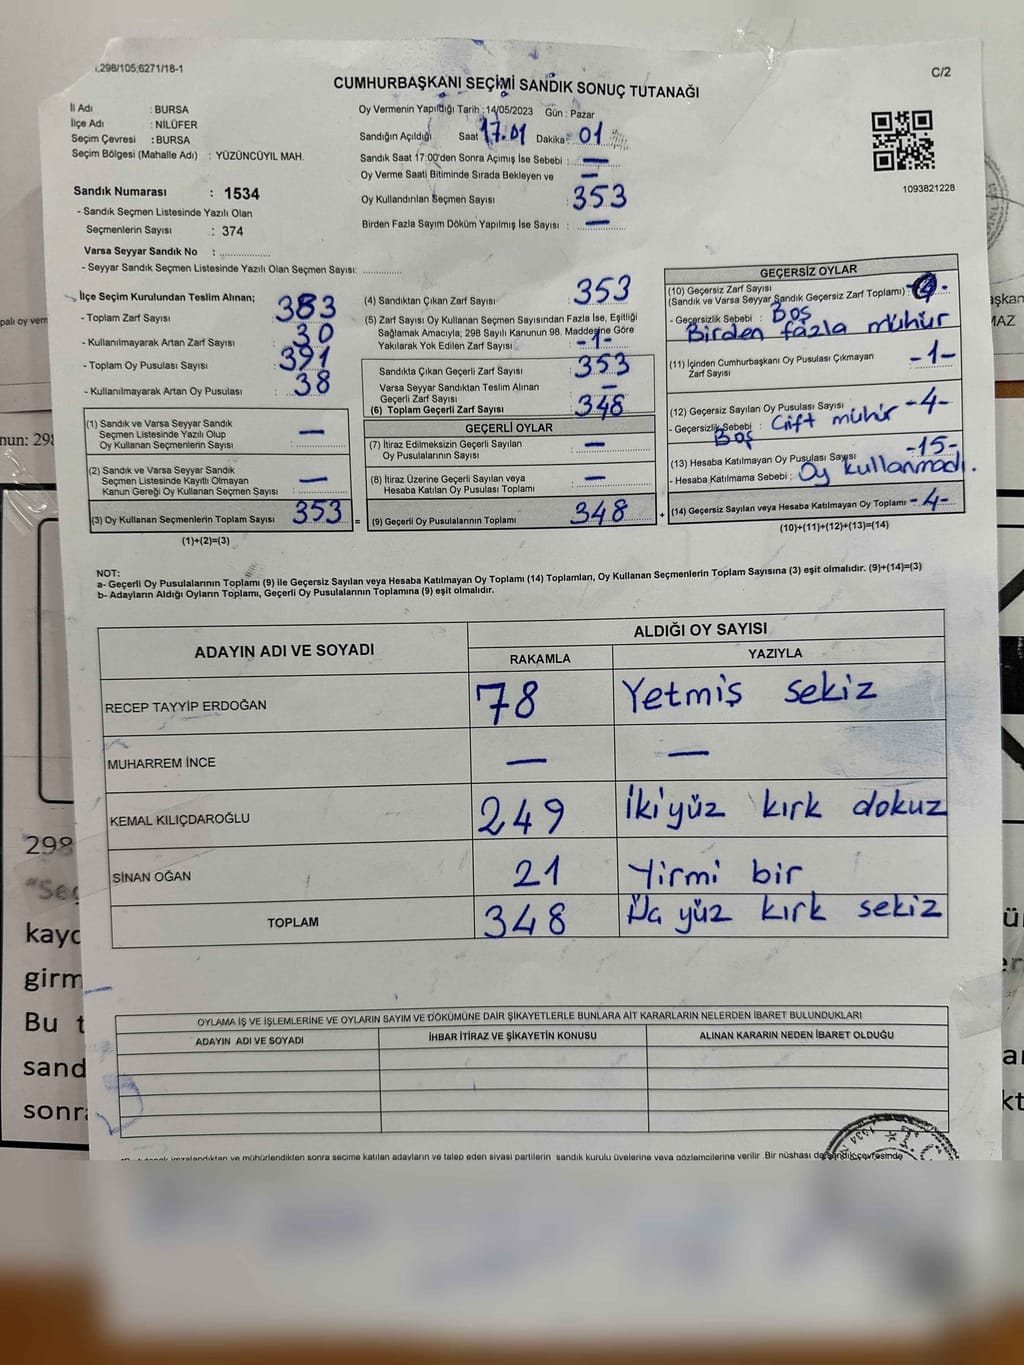 298/105;6271/18-1
C/2
CUMHURBAŞKANI SEÇİMİ SANDIK SONUÇ TUTANAĞI
İl Adı : BURSA
İlçe Adı : NİLÜFER
Seçim Çevresi : BURSA
Seçim Bölgesi (Mahalle Adı) : YÜZÜNCÜYIL MAH.
Oy Vermenin Yapıldığı Tarih :14/05/2023 Gün : Pazar
Sandığın Açıldığı Saat 17.01 Dakika : 01
Sandık Saat 17:00'den Sonra Açımış İse Sebebi : —
Oy Verme Saati Bitiminde Sırada Bekleyen ve —
Oy Kullandırılan Seçmen Sayısı 353
Birden Fazla Sayım Döküm Yapılmış İse Sayısı : —
1093821228
Sandık Numarası : 1534
- Sandık Seçmen Listesinde Yazılı Olan
Seçmenlerin Sayısı : 374
Varsa Seyyar Sandık No :
- Seyyar Sandık Seçmen Listesinde Yazılı Olan Seçmen Sayısı:
İlçe Seçim Kurulundan Teslim Alınan;
- Toplam Zarf Sayısı : 383
- Kullanılmayarak Artan Zarf Sayısı : 30
- Toplam Oy Pusulası Sayısı : 391
- Kullanılmayarak Artan Oy Pusulası : 38
(1) Sandık ve Varsa Seyyar Sandık
Seçmen Listesinde Yazılı Olup
Oy Kullanan Seçmenlerin Sayısı —
(2) Sandık ve Varsa Seyyar Sandık
Seçmen Listesinde Kayıtlı Olmayan
Kanun Gereği Oy Kullanan Seçmen Sayısı —
(3) Oy Kullanan Seçmenlerin Toplam Sayısı 353 =
(1)+(2)=(3)
(4) Sandıktan Çıkan Zarf Sayısı : 353
(5) Zarf Sayısı Oy Kullanan Seçmen Sayısından Fazla İse, Eşitliği
Sağlamak Amacıyla; 298 Sayılı Kanunun 98. Maddesine Göre
Yakılarak Yok Edilen Zarf Sayısı -1-
Sandıkta Çıkan Geçerli Zarf Sayısı 353
Varsa Seyyar Sandıktan Teslim Alınan
Geçerli Zarf Sayısı —
(6) Toplam Geçerli Zarf Sayısı 348
GEÇERLİ OYLAR
(7) İtiraz Edilmeksizin Geçerli Sayılan
Oy Pusulalarının Sayısı —
(8) İtiraz Üzerine Geçerli Sayılan veya
Hesaba Katılan Oy Pusulası Toplamı —
(9) Geçerli Oy Pusulalarının Toplamı 348 +
GEÇERSİZ OYLAR
(10) Geçersiz Zarf Sayısı
(Sandık ve Varsa Seyyar Sandık Geçersiz Zarf Toplamı) :
- Geçersizlik Sebebi : Boş
Birden fazla mühür
(11) İçinden Cumhurbaşkanı Oy Pusulası Çıkmayan
Zarf Sayısı -1-
(12) Geçersiz Sayılan Oy Pusulası Sayısı -4-
- Geçersizlik Sebebi : Çift mühür
Boş
(13) Hesaba Katılmayan Oy Pusulası Sayısı -15-
- Hesaba Katılmama Sebebi : Oy kullanmadı.
(14) Geçersiz Sayılan veya Hesaba Katılmayan Oy Toplamı -4-
(10)+(11)+(12)+(13)=(14)
NOT:
a- Geçerli Oy Pusulalarının Toplamı (9) ile Geçersiz Sayılan veya Hesaba Katılmayan Oy Toplamı (14) Toplamları, Oy Kullanan Seçmenlerin Toplam Sayısına (3) eşit olmalıdır. (9)+(14)=(3)
b- Adayların Aldığı Oyların Toplamı, Geçerli Oy Pusulalarının Toplamına (9) eşit olmalıdır.
ADAYIN ADI VE SOYADI
ALDIĞI OY SAYISI
RAKAMLA YAZIYLA
RECEP TAYYİP ERDOĞAN 78 Yetmiş sekiz
MUHARREM İNCE — —
KEMAL KILIÇDAROĞLU 249 İkiyüz kırk dokuz
SİNAN OĞAN 21 Yirmi bir
TOPLAM 348 yüz kırk sekiz
OYLAMA İŞ VE İŞLEMLERİNE VE OYLARIN SAYIM VE DÖKÜMÜNE DAİR ŞİKAYETLERLE BUNLARA AİT KARARLARIN NELERDEN İBARET BULUNDUKLARI
ADAYIN ADI VE SOYADI İHBAR İTİRAZ VE ŞİKAYETİN KONUSU ALINAN KARARIN NEDEN İBARET OLDUĞU
imzalandıktan ve mühürlendikten sonra seçime katılan adayların ve talep eden siyasi partilerin sandık kurulu üyelerine veya gözlemcilerine verilir. Bir nüshası da sandık çevresinde
palı oy verm
nun: 298
298
"Seç
kayd
girm
Bu t
sand
sonra